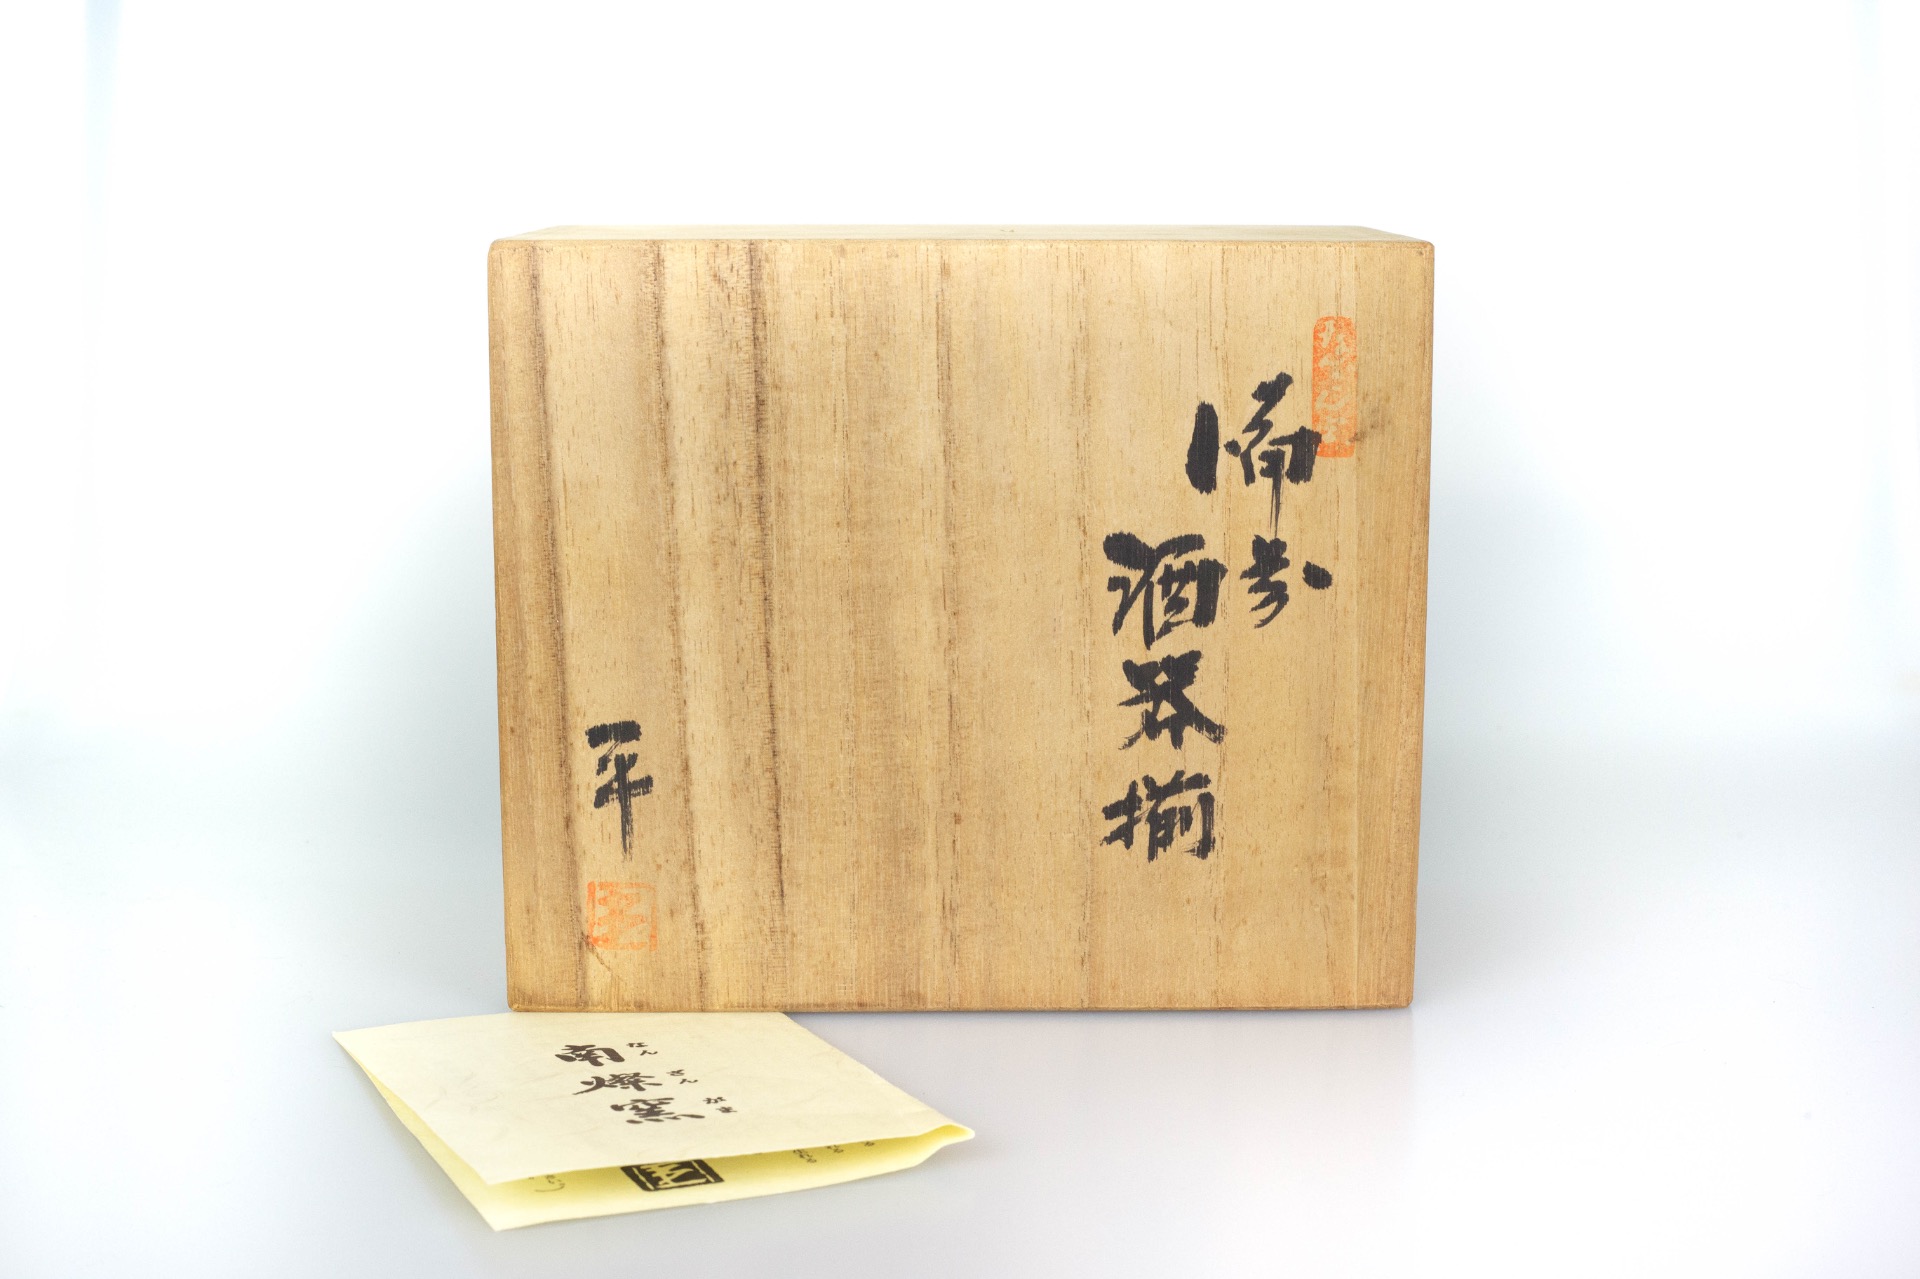 備前
酒器揃
一平
南燦窯
なんさんがま